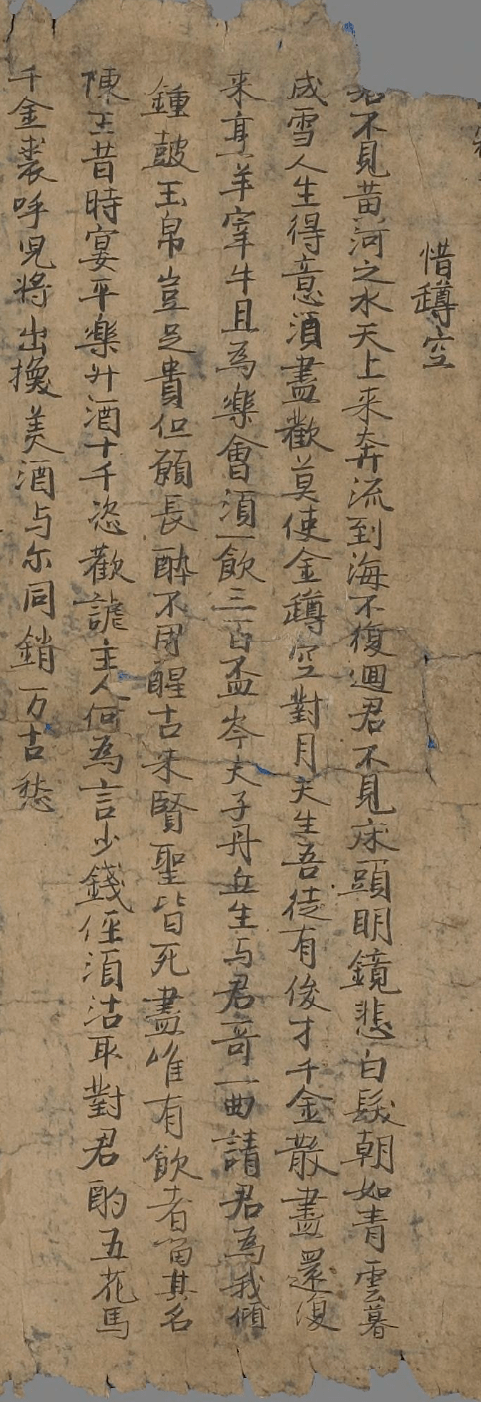 惜罇空
君不見黃河之水天上來奔流到海不復迴君不見床頭明鏡悲白髮朝如青雲暮
成雪人生得意須盡歡莫使金罇空對月天生吾徒有俊才千金散盡還復
来烹羊宰牛且為樂會須一飲三百盃岑夫子丹丘生与君哥一曲請君為我傾
鍾皷玉帛豈足貴但願長醉不用醒古来賢聖皆死盡唯有飲者留其名
陳王昔時宴平樂斗酒十千恣歡謔主人何為言少錢徑須沽取對君酌五花馬
千金裘呼児將出換美酒与尔同銷万古愁